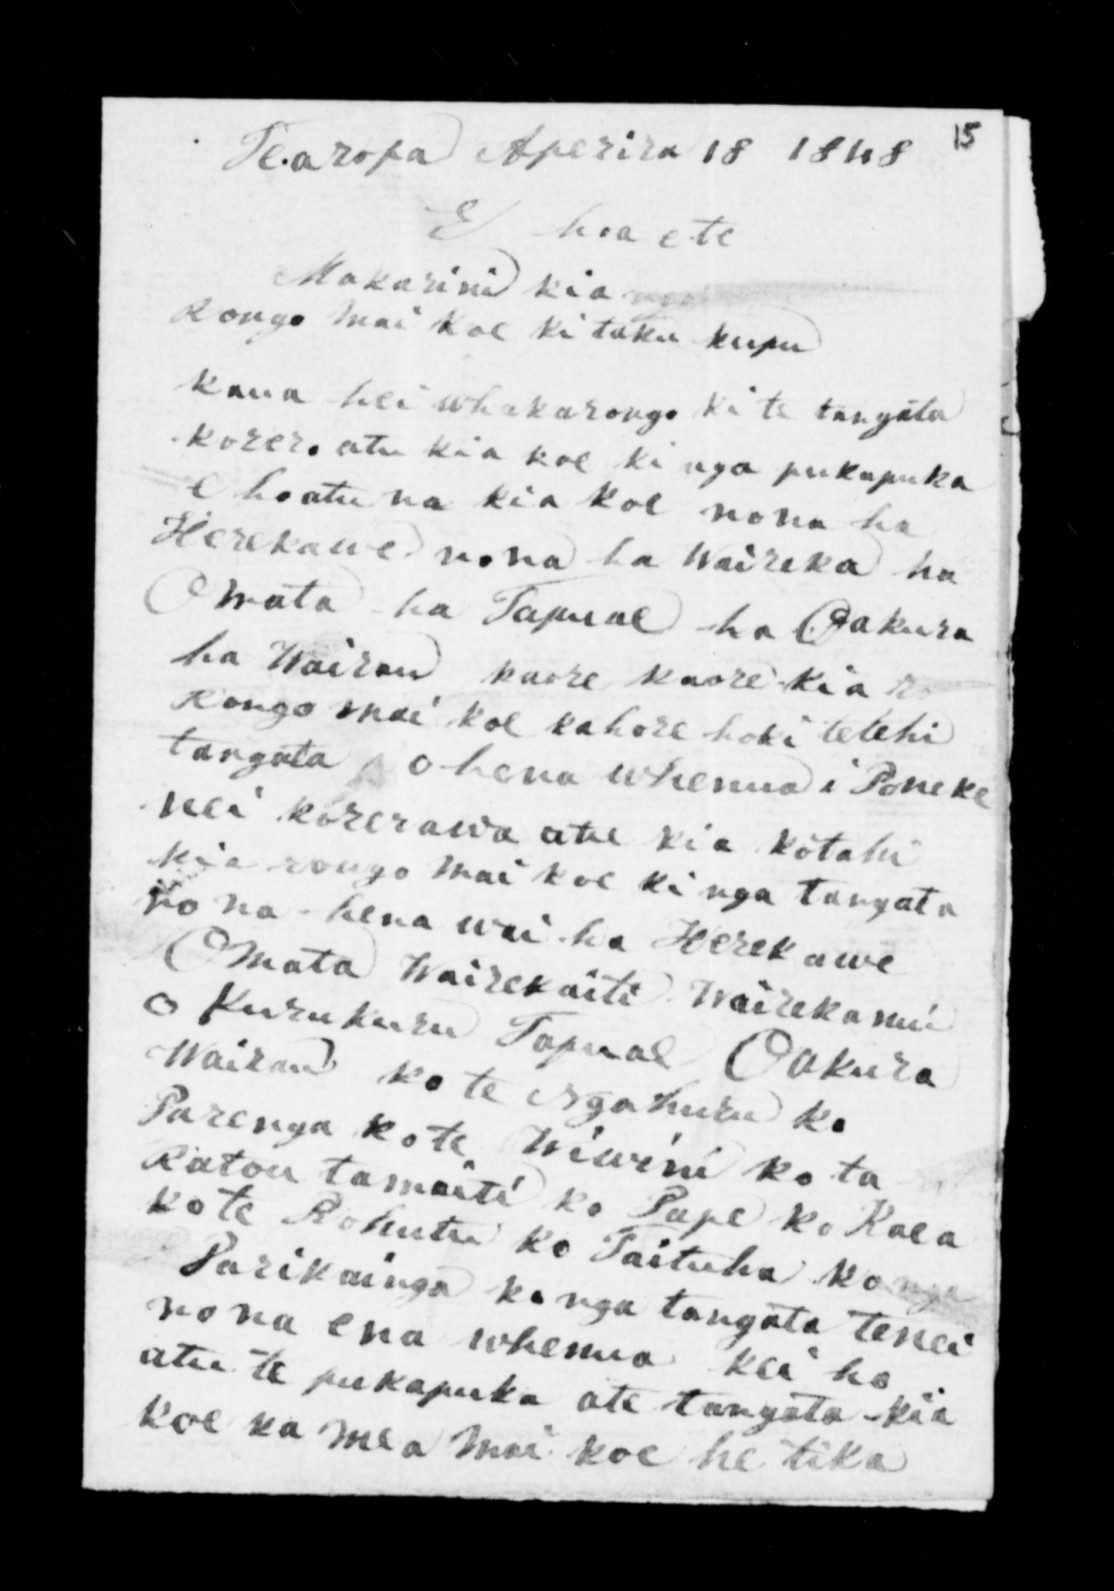 15
Te.aropa Aperira 18 1848
E hoa e te
Makarini kia
Rongo mai koe ki taku kupu
kaua hei whakarongo ki te tangata
korero atu kia koe ki nga pukapuka
e hoatu na kia koe nona ha
Herekawe nona ha Waireka ha
Omata ha Tapuae ha Oakura
ha Wairau kaore kaore kia
Rongo mai koe kahore hoki tetehi
tangata o hena whenua i Poneke
nei korerawa atu kia kotahi
kia rongo mai koe ki nga tangata
no na hena wai ha Herekawe
Omata Wairekaiti Wairekanui
o Kurukuru Tapuae Oakura
Wairau ko te Ngahuru ko
Parenga ko te Wiwini ko ta
Ratou tamaiti ko Pape ko Kaea
ko te Rohutu ko Taituha ko nga
Parikainga ko nga tangata tenei
no na ena whenua kei ho
atu te pukapuka ate tangata kia
koe ka mea mai koe he tika